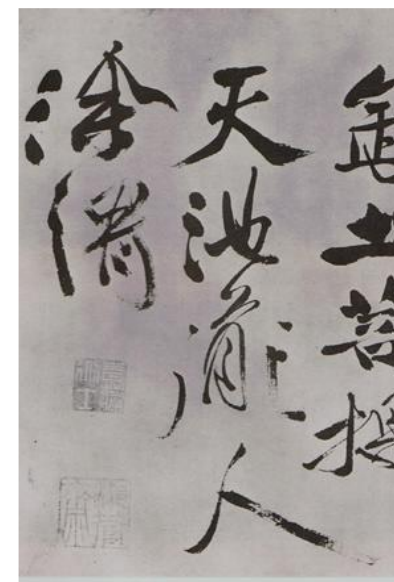 土菩提
天池道人
徐渭